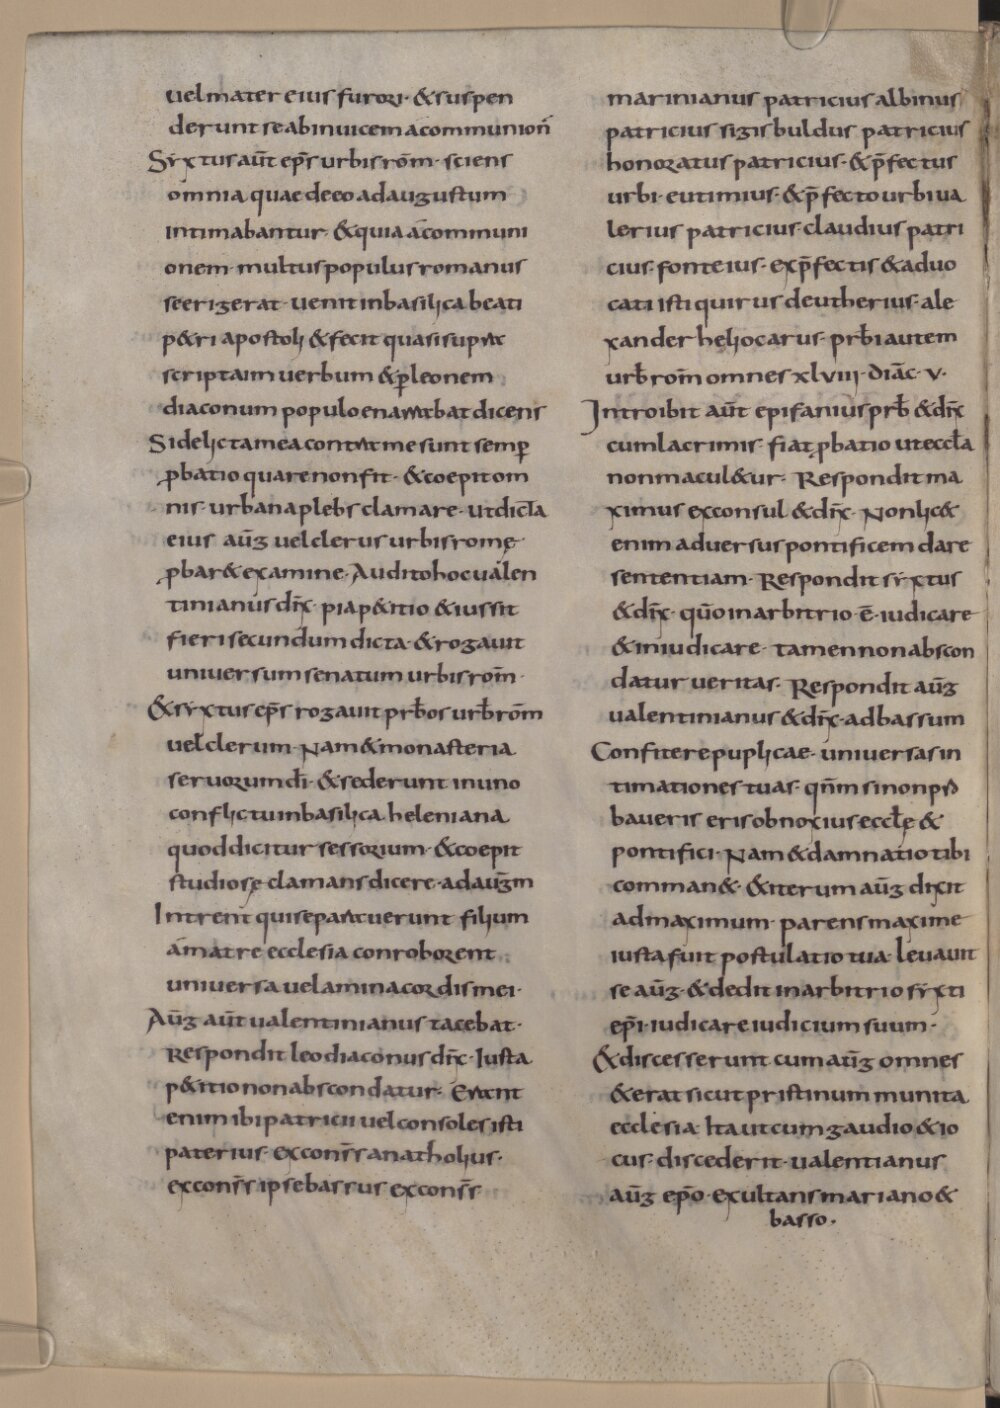 uel mater eius furori· &suspen
derunt se abinuicem acommunioñ
Syxtus aūt ep̄s urbis rōm· sciens
omnia quae deeo adaugustum
intimabantur· &quia acommuni
onem· multus populus romanus
se erigerat· uenit inbasilica beati
p&ri apostoli &fecit quasi supra
scriptam uerbum &p̲leonem
diaconum populo enarrabat dicens
Si delicta mea contra me sunt semp̲
p̲batio quare non fit· &coepit om
nis· urbana plebs clamare· ut dicta
eius aūg uel clerus urbis romę·
p̲bar& examine· Audito hoc ualen
tinianus dix̄· pia p&itio &iussit
fieri secundum dicta· &rogauit
uniuersum senatum urbis rom̄·
&syxtus ep̄s rogauit prb̄os urb̄ rōm
uel clerum· Nam &monasteria
seruorum dī· &sederunt in uno
conflictu inbasilica heleniana
quod dicitur sessorium· &coepit
studiosę clamans dicere· ad aug̅m
Intrent qui separauerunt filium
amatre ecclesia conroborent
uniuersa uelamina cordis mei·
Aūg aūt ualentinianus tacebat·
Respondit leo diaconus dix̄· Iusta
p&itio non abscondatur· Erant
enim ibi patricii uel consoles isti
paterius· excons̄s anatholius·
excons̄s ipse bassus excons̄s
marinianus patricius albinus
patricius sigisbuldus patricius
honoratus patricius· &p̄fectus
urbi· eutimius· &p̄fecto urbi ua
lerius patricius· claudius patri
cius· fonteius· exp̄fectis &aduo
cati isti quirus deutherius· ale
xander heliocarus· prb̄i autem
urb̄ rom̄ omnes xlviii· diāc· v·
Introibit aūt epifanius prb̄ &dix̄
cum lacrimis· fiat p̲batio ut eccl̄a
non macul&ur· Respondit ma
ximus exconsul &dix̄· Non lic&
enim aduersus pontificem dare
sententiam· Respondit syxtus
&dix̄· quō in arbitrio ē· iudicare
&iniudicare· tamen non abscon
datur ueritas· Respondit aūg
ualentinianus &dix̄· ad bassum
Confitere puplicae· uniuersas in
timationes tuas· qn̄m si non p̲
baueris eris obnoxius eccl̄ę &
pontifici· Nam &damnatio tibi
comman&· &iterum aūg dixit
ad maximum· parens maxime
iusta fuit postulatio tua· leuauit
se aūg· &dedit in arbitrio syxti
ep̄i· iudicare iudicium suum·
&discesserunt cum aūg omnes
&erat sicut pristinum munita
ecclesia· Ita ut cum gaudio &io
cus· discederit· ualentianus
aūg ep̄o· exultans mariano &
basso·